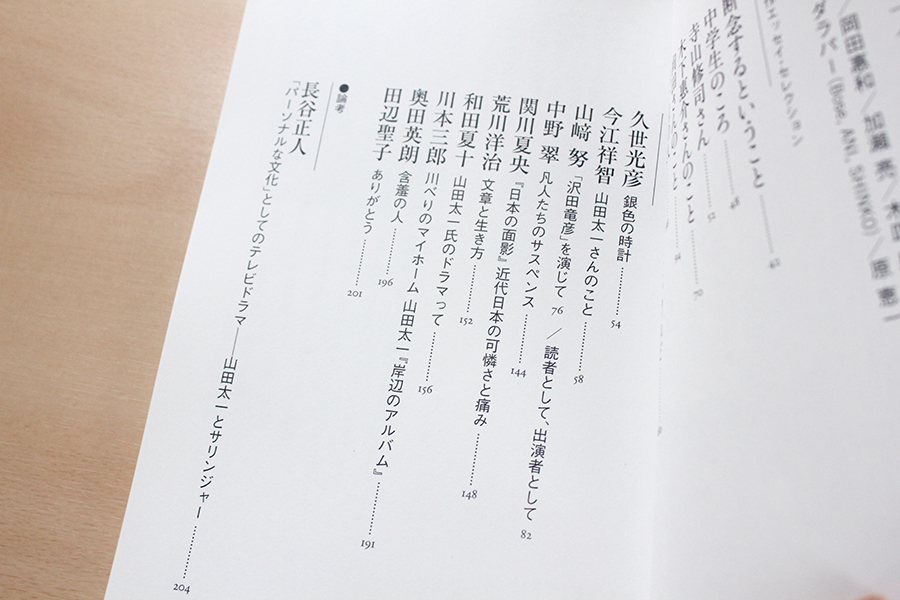 岡田惠和／加瀬 亮／木皿
ダラパー(Bose, ANI, SHINCO)／原 恵一
エッセイ・セレクション
断念するということ 42
中学生のころ 48
寺山修司さん 52
木下惠介さんのこと 70
久世光彦 銀色の時計………54
今江祥智 山田太一さんのこと………58
山﨑 努 「沢田竜彦」を演じて 76 ／読者として、出演者として 82
中野 翠 凡人たちのサスペンス………144
関川夏央 『日本の面影』近代日本の可憐さと痛み………148
荒川洋治 文章と生き方………152
和田夏十 山田太一氏のドラマって………156
川本三郎 川べりのマイホーム 山田太一『岸辺のアルバム』………191
奥田英朗 含羞の人………196
田辺聖子 ありがとう………201
●論考
長谷正人
「パーソナルな文化」としてのテレビドラマ――山田太一とサリンジャー………204